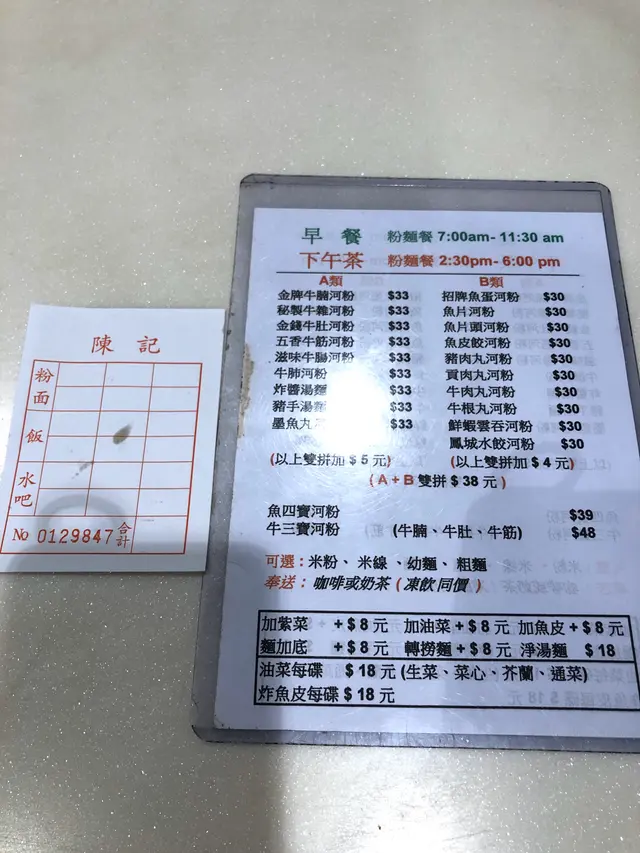 陳記
粉面
飯
水吧
No 0129847 合計
早餐 粉麵餐 7:00am- 11:30 am
下午茶 粉麵餐 2:30pm- 6:00 pm
A類 B類
金牌牛腩河粉 $33 招牌魚蛋河粉 $30
秘製牛雜河粉 $33 魚片河粉 $30
金錢牛肚河粉 $33 魚片頭河粉 $30
五香牛筋河粉 $33 魚皮餃河粉 $30
滋味牛腸河粉 $33 豬肉丸河粉 $30
牛肺河粉 $33 貢肉丸河粉 $30
炸醬湯麵 $33 牛肉丸河粉 $30
豬手湯麵 $33 牛根丸河粉 $30
墨魚丸 $33 鮮蝦雲吞河粉 $30
鳳城水餃河粉 $30
(以上雙拼加 $ 5 元) (以上雙拼加 $ 4 元)
( A + B 雙拼 $ 38 元 )
魚四寶河粉 $39
牛三寶河粉 (牛腩、牛肚、牛筋) $48
可選：米粉、米線、幼麵、粗麵
奉送：咖啡或奶茶 ( 凍飲同價 )
加紫菜 + $ 8 元 加油菜 + $ 8 元 加魚皮 + $ 8 元
麵加底 + $ 8 元 轉撈麵 + $ 8 元 淨湯麵 $ 18
油菜每碟 $ 18 元 (生菜、菜心、芥蘭、通菜)
炸魚皮每碟 $ 18 元